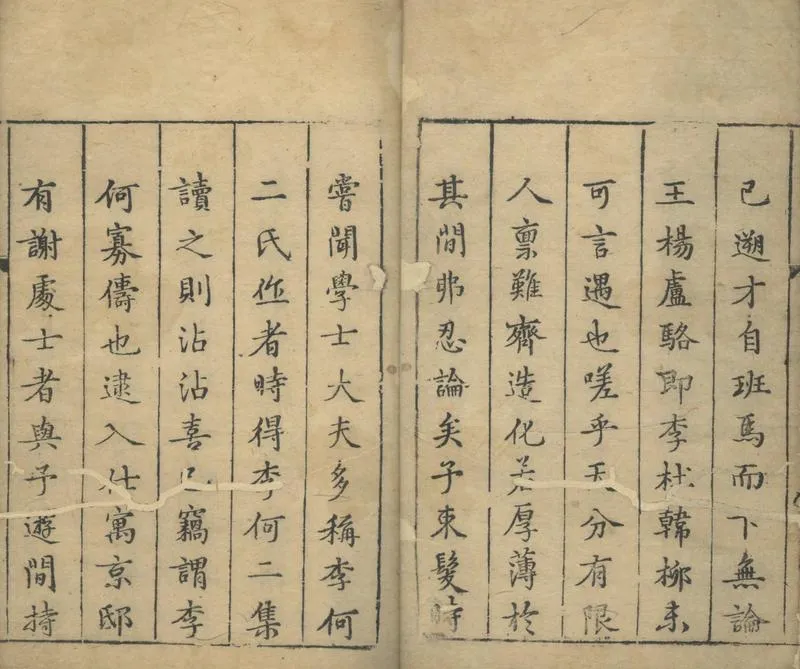 已遡才自班馬而下無論
王楊盧駱即李杜韓柳未
可言遇也嗟乎天分有限
人禀難齊造化若厚薄於
其間弗忍論矣予束髮時
嘗聞學士大夫多稱李何
二氏作者時得李何二集
讀之則沾沾喜已竊謂李
何寡儔也逮入仕寓京邸
有謝處士者與予遊間持